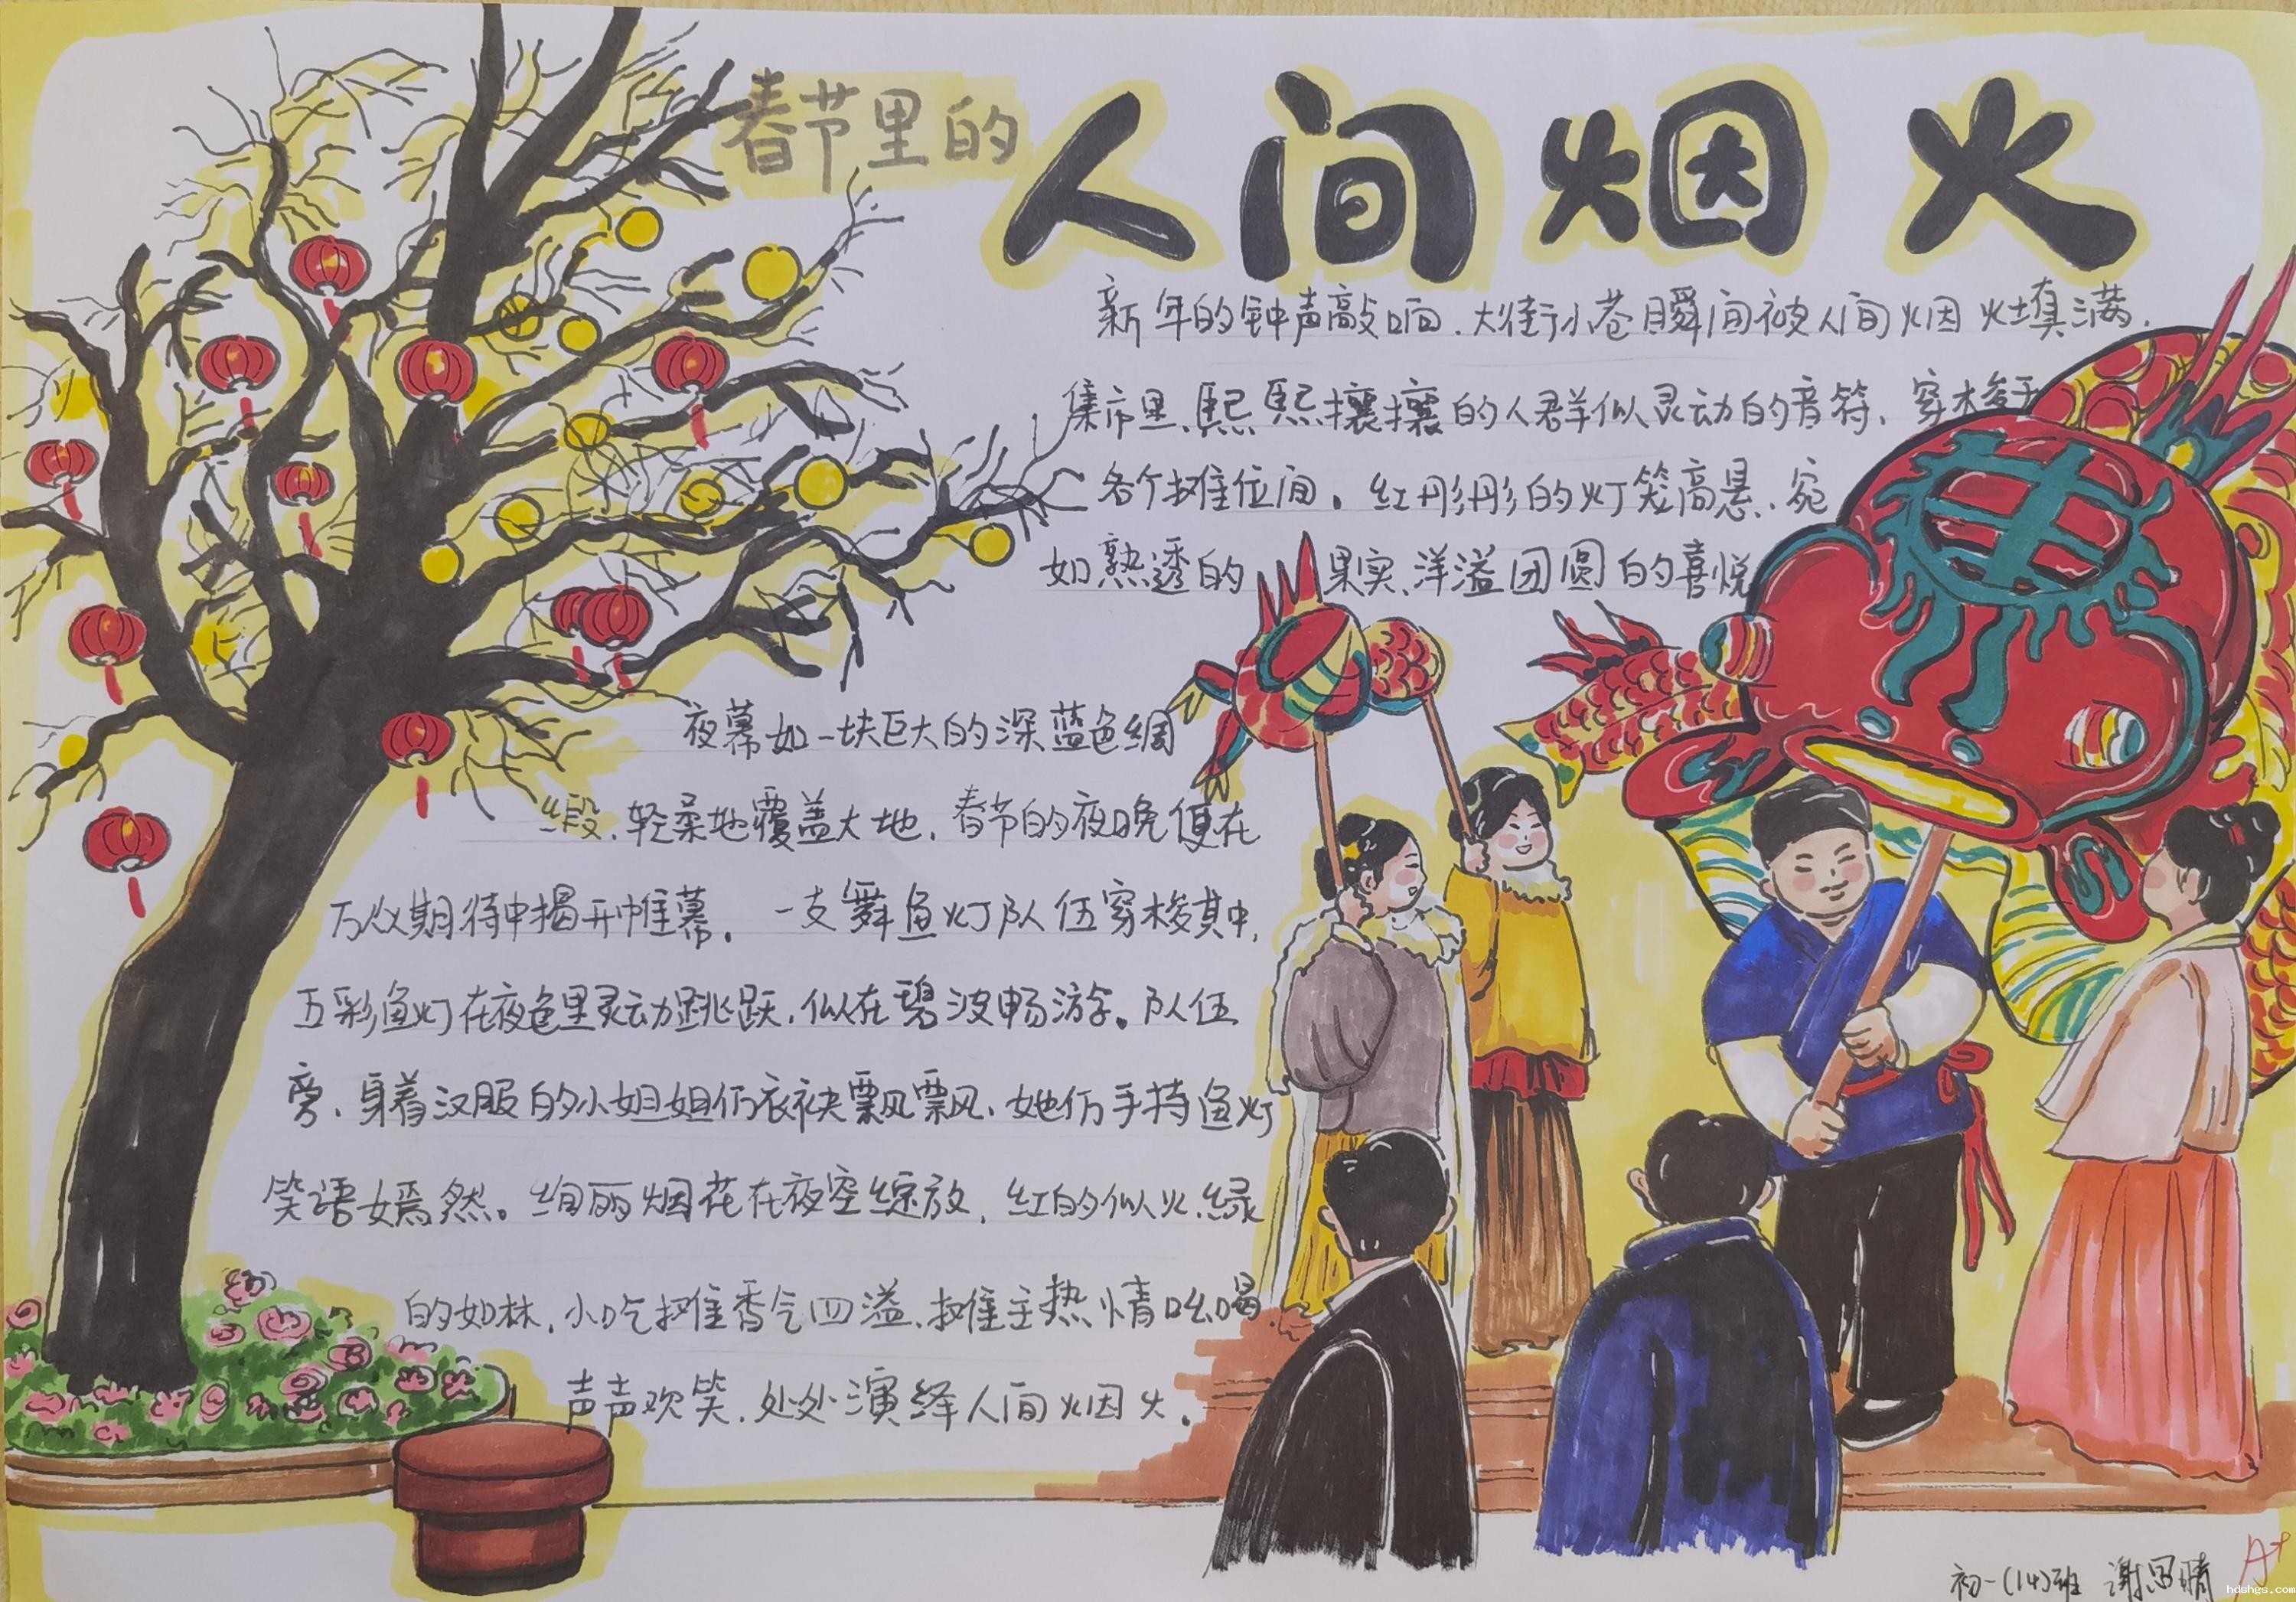 春节里的
人间烟火
新年的钟声敲响,大街小巷瞬间被人间烟火填满,
集市里,熙熙攘攘的人群似灵动的音符,穿梭于
各个摊位间。红彤彤的灯笼高悬,宛
如熟透的果实,洋溢团圆的喜悦
夜幕如一块巨大的深蓝色绸
缎,轻柔地覆盖大地,春节的夜晚便在
万众期待中揭开帷幕。一支舞鱼灯队伍穿梭其中,
五彩鱼灯在夜色里灵动跳跃,似在碧波畅游。队伍
旁,身着汉服的小姐姐们衣袂飘飘,她们手持鱼灯
笑语嫣然。绚丽烟花在夜空绽放,红的似火,绿
的如林,小吃摊香气四溢,摊主热情吆喝,
声声欢笑,处处演绎人间烟火。
初一(14)班 谢思晴
A+
hdshgs.com